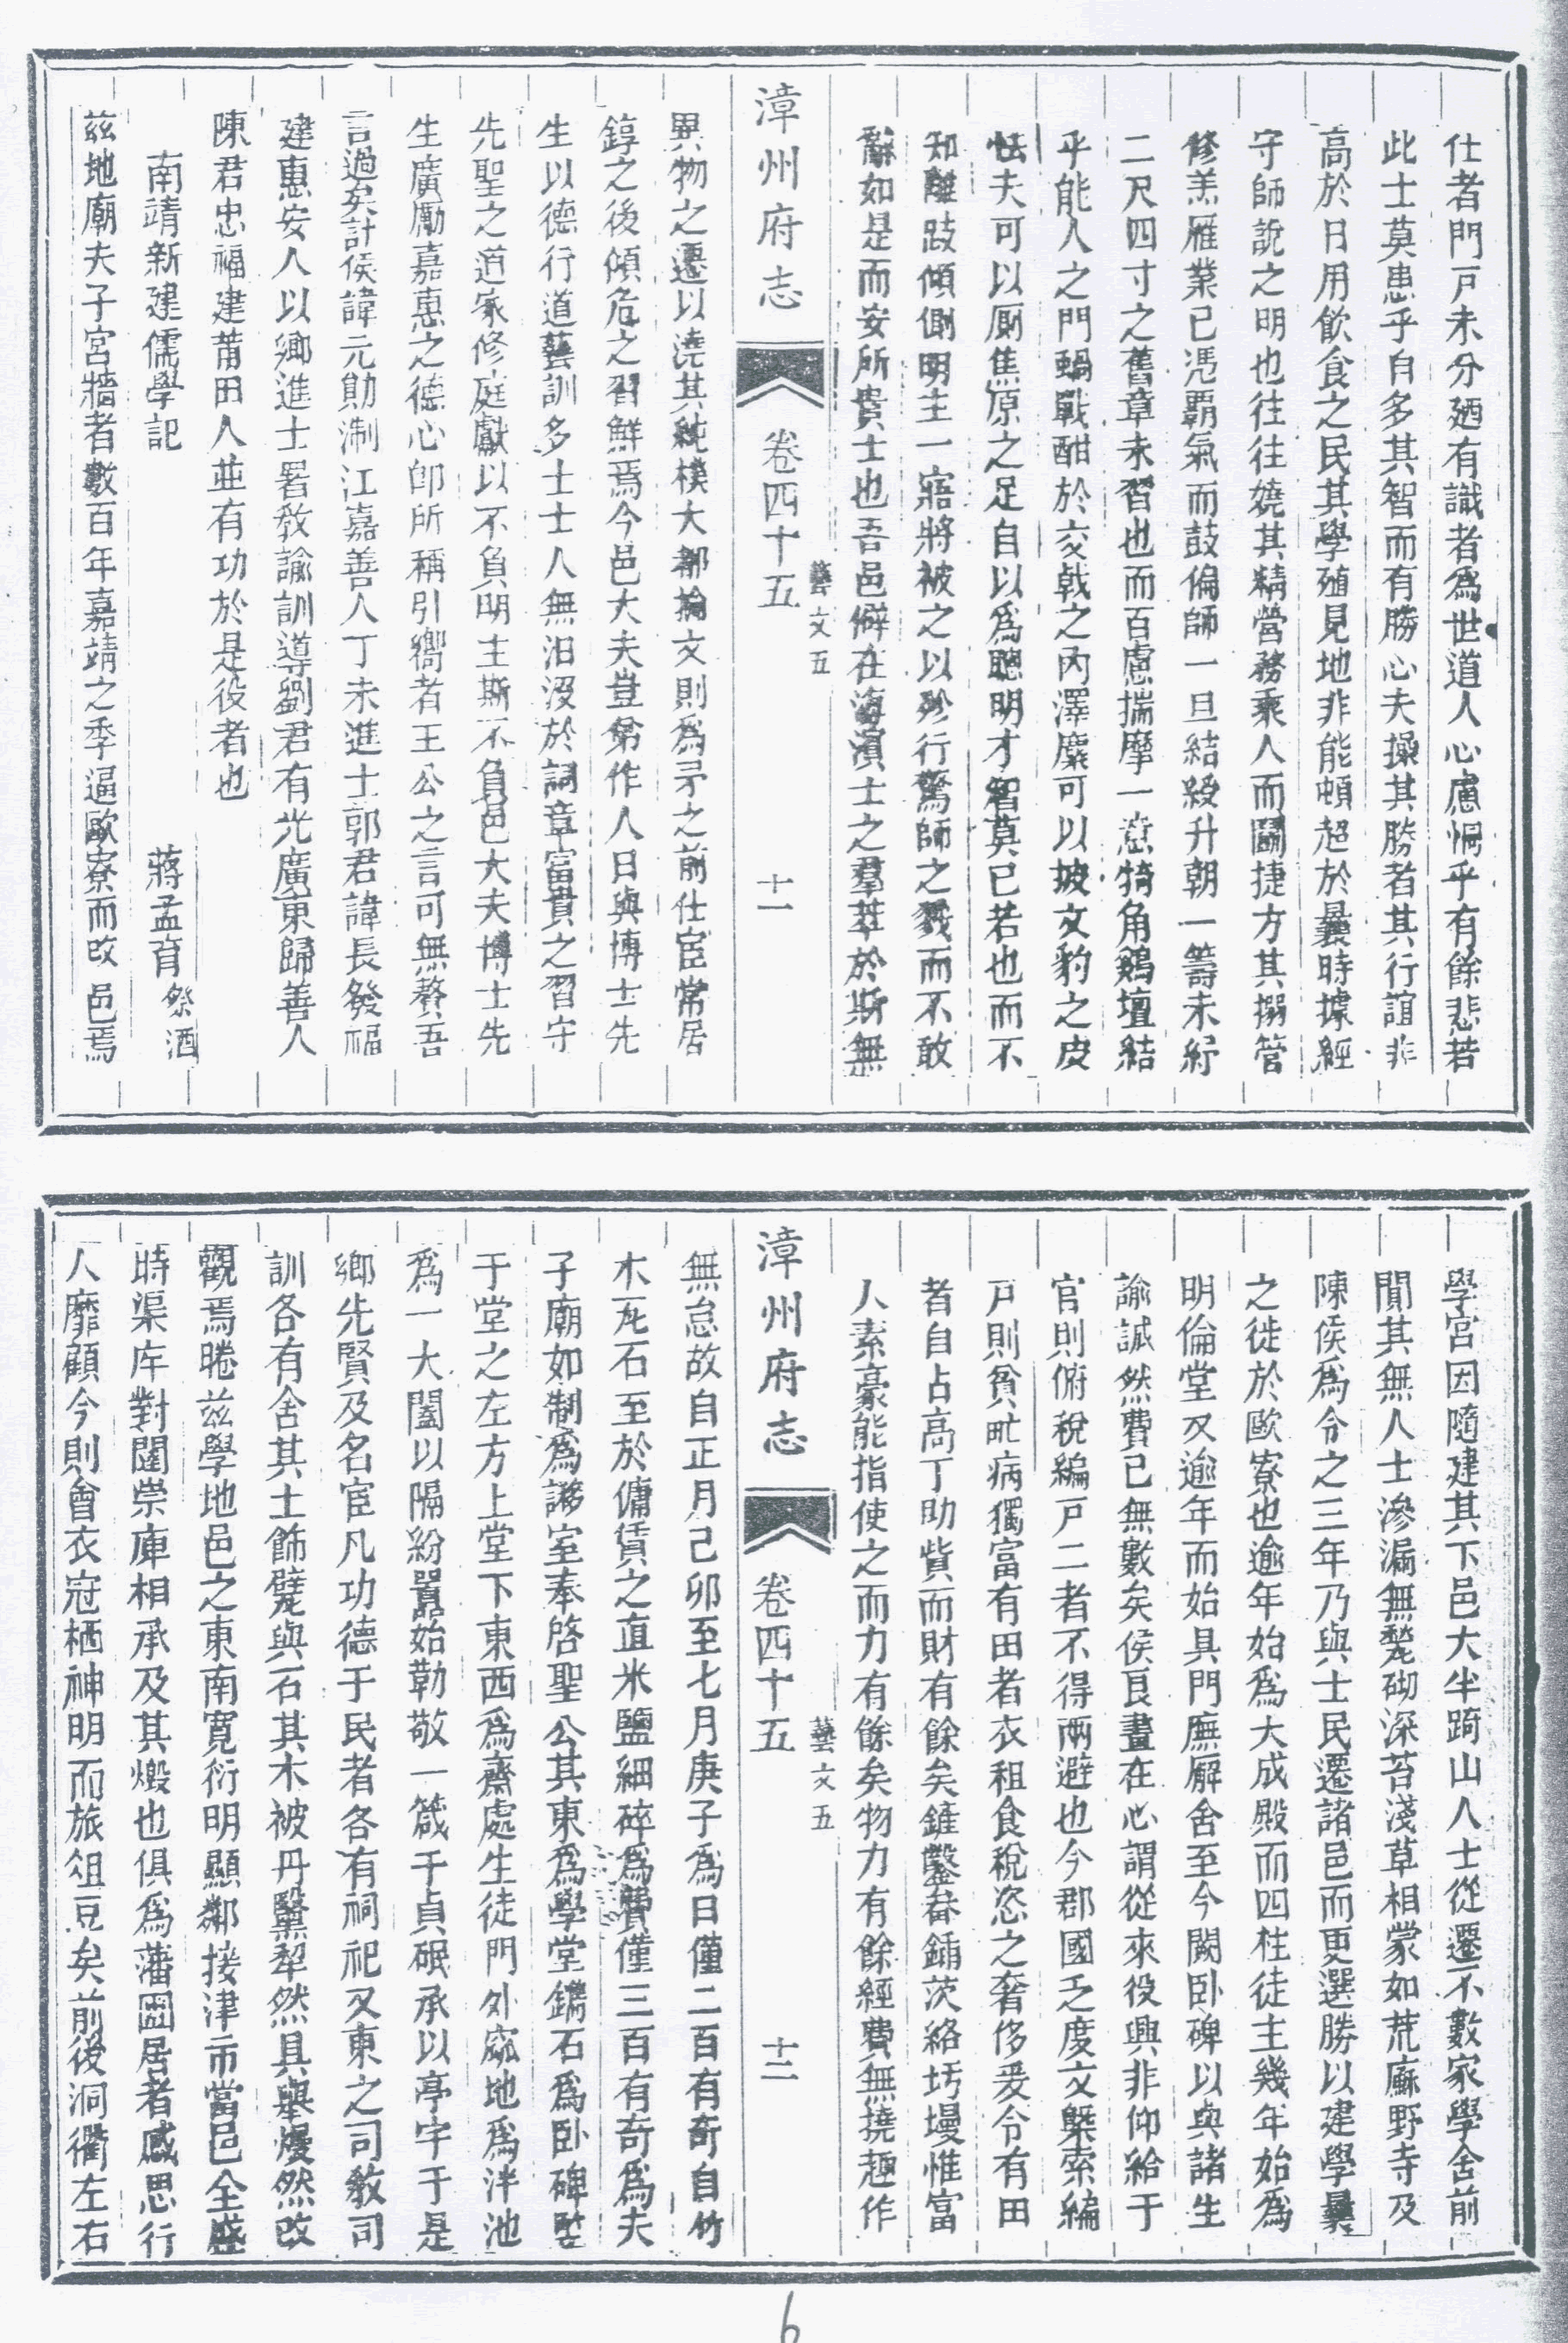 仕者門戸未分廼有識者爲世道人心慮惘乎有餘悲若
此士莫患乎自多其智而有勝心夫操其勝者其行誼非
高於日用飲食之民其學殖見地非能頓超於曩時據經
守師說之明也往往嬈其精營務乘人而鬬捷方其搦管
修羔雁業已憑覇氣而鼓偏師一旦結綬升朝一籌未紓
二尺四寸之舊章未習也而百慮揣摩一意犄角鷄壇結
乎能人之門蝸戰酣於交戟之內澤麋可以披文豹之皮
怯夫可以厠焦原之足自以爲聰明才智莫已若也而不
知離跂傾側明主一寤將被之以殄行驚師之戮而不敢
辭如是而安所貴士也吾邑僻在海濱士之羣萃於斯無
漳州府志
卷四十五
藝文五
十一
異物之遷以澆其純樸大都掄文則爲弁之前仕宦常居
錞之後傾危之習鮮焉今邑大夫豈弟作人日與博士先
生以德行道藝訓多士士人無汨沒於詞章富貴之習守
先聖之道家修庭獻以不負明主斯不負邑大夫博士先
生廣勵嘉惠之德心卽所稱引嚮者王公之言可無贅吾
言過矣計侯諱元勛淛江嘉善人丁未進士郭君諱長發福
建惠安人以鄉進士署敎諭訓導劉君有光廣東歸善人
陳君忠福建莆田人並有功於是役者也
南靖新建儒學記
蔣孟育祭酒
茲地廟夫子宮牆者數百年嘉靖之季逼歐寮而改邑焉
學宮因隨建其下邑大半踦山人士從遷不數家學舍前
閴其無人士滲漏無甃砌深苔淺草相蒙如荒廡野寺及
陳侯爲令之三年乃與士民遷諸邑而更選勝以建學曩
之徙於歐寮也逾年始爲大成殿而四柱徒主幾年始爲
明倫堂又逾年而始具門廡廨舍至今闕卧碑以與諸生
諭誠然費已無數矣侯良畫在心謂從來役興非仰給于
官則俯稅編戸二者不得兩避也今郡國乏度文槩索編
戸則貧甿病獨富有田者衣租食稅恣之奢侈爰令有田
者自占高丁助貲而財有餘矣鍾鑿畚鍤茨絡圬墁惟富
人素豪能指使之而力有餘矣物力有餘經費無撓趣作
漳州府志
卷四十五
藝文五
十二
無怠故自正月己卯至七月庚子爲日僅二百有奇自竹
木瓦石至於傭賃之直米鹽細碎爲費僅三百有奇爲夫
子廟如制爲謻室奉啓聖公其東爲學堂鐫石爲卧碑豎
于堂之左方上堂下東西爲齋處生徒門外窊地爲泮池
爲一大闔以隔紛囂始勒敬一箴于貞珉承以亭宇于是
鄉先賢及名宦凡功德于民者各有祠祀又東之司敎司
訓各有舍其土飾甓與石其木被丹黳犁然具舉煥然改
觀焉睠茲學地邑之東南寛衍明顯鄰接津市當邑全盛
時渠庠對闥崇庫相承及其燬也俱爲藩圂居者慼思行
人靡顧今則會衣冠栖神明而旅俎豆矣前後洞衢左右
6